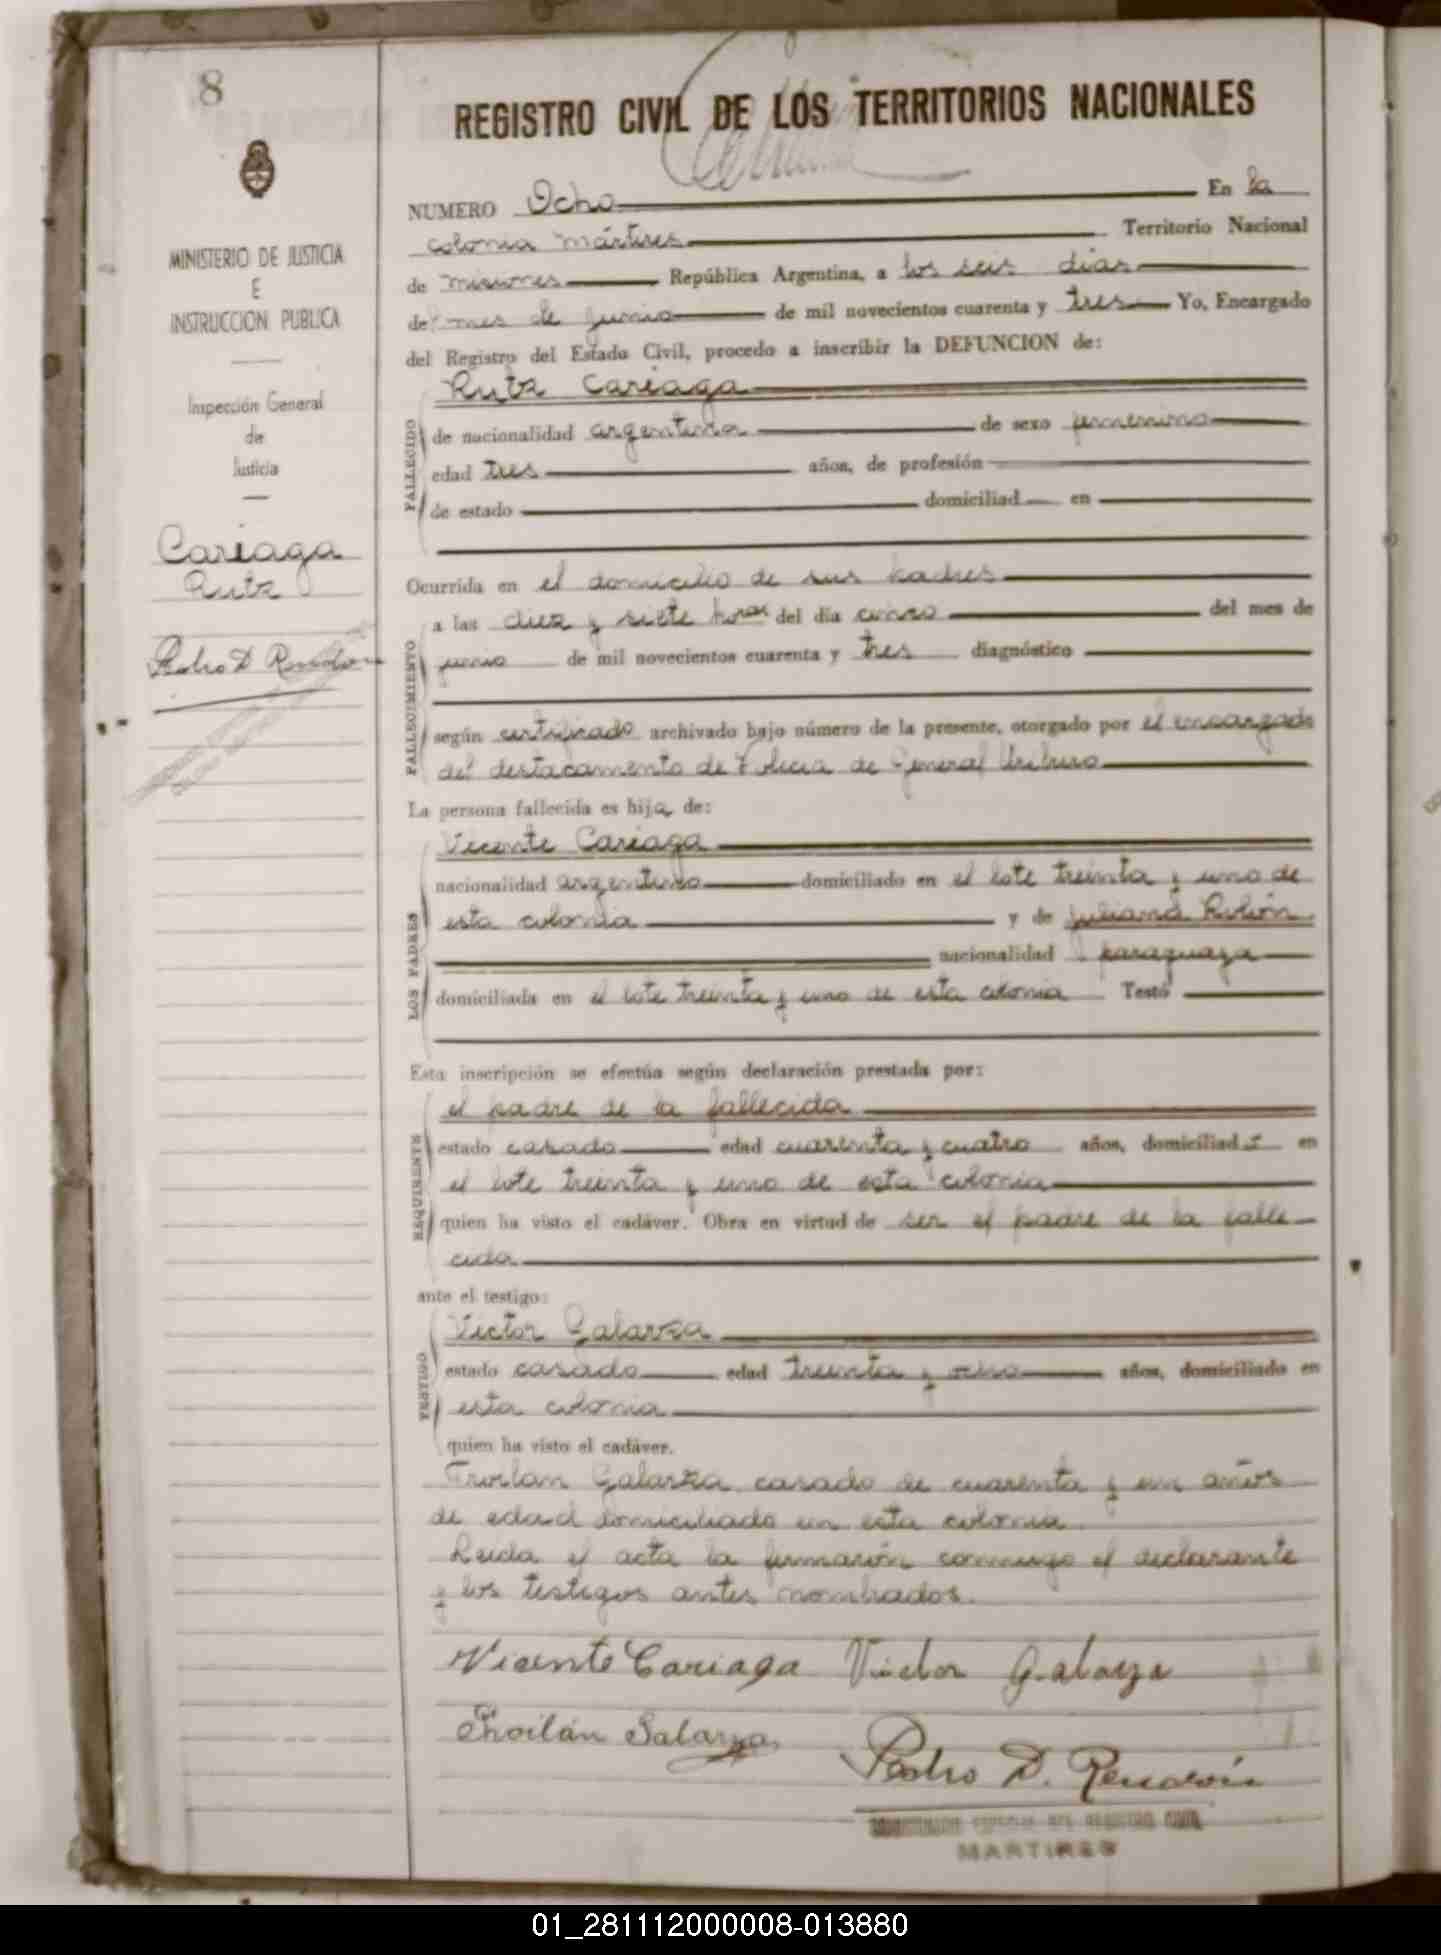 8
REGISTRO CIVIL DE LOS TERRITORIOS NACIONALES
MINISTERIO DE JUSTICIA
E
INSTRUCCION PUBLICA
Inspección General
de
Justicia
Cariaga
Ruth
NUMERO Ocho En la
colonia mártires Territorio Nacional
de misiones República Argentina, a los seis dias
del mes de junio de mil novecientos cuarenta y tres Yo, Encargado
del Registro del Estado Civil, procedo a inscribir la DEFUNCION de:
FALLECIDO
Cariaga
de nacionalidad argentina de sexo femenino
edad tres años, de profesión
de estado domiciliad en
Ocurrida en el domicilio de sus padres
FALLECIMIENTO
a las diez y siete horas del día cinco del mes de
junio de mil novecientos cuarenta y tres diagnóstico
según certificado archivado bajo número de la presente, otorgado por el encargado
del destacamento de Policia de General Uriburu
La persona fallecida es hija de:
LOS PADRES
Vicente Cariaga
nacionalidad argentino domiciliado en el lote treinta y uno de
esta colonia y de Juliana Rolón
nacionalidad paraguaya
domiciliada en el lote treinta y uno de esta colonia Testó
Esta inscripción se efectúa según declaración prestada por:
REQUIRENTE
el padre de la fallecida
estado casado edad cuarenta y cuatro años, domiciliado en
el lote treinta y uno de esta colonia
quien ha visto el cadáver. Obra en virtud de ser el padre de la falle
cida
ante el testigo:
TESTIGO
Victor Galarza
estado casado edad treinta y ocho años, domiciliado en
esta colonia
quien ha visto el cadáver.
Troilan Galarza casado de cuarenta y un años
de edad domiciliado en esta colonia
Leida el acta la firmarón conmigo el declarante
y los testigos antes nombrados.
Vicente Cariaga Victor Galarza
Troilán Galarza
Pedro D.
MARTIRES
01_281112000008-013880